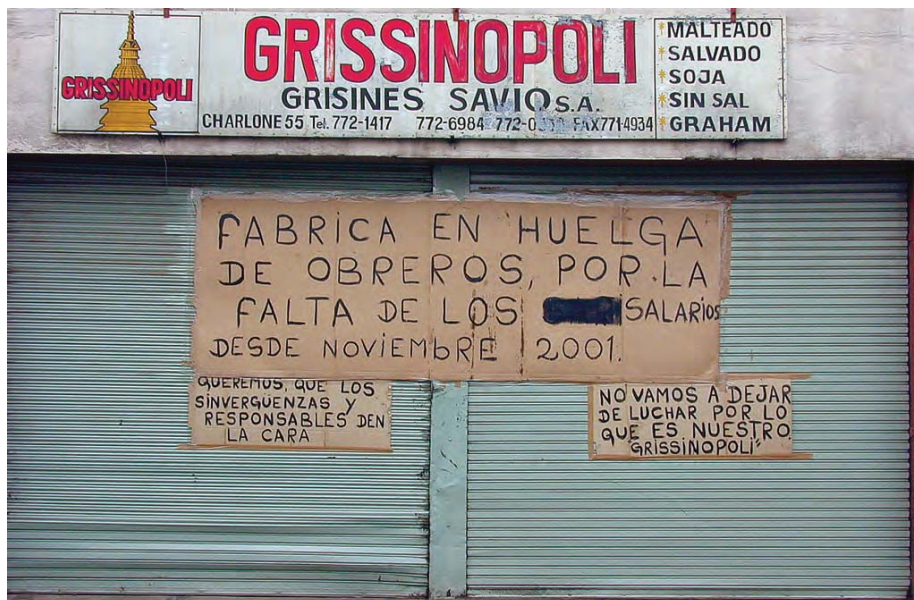 GRISSINOPOLI
GRISSINOPOLI
GRISINES SAVIO S.A.
CHARLONE 55 Tel. 772-1417 772-6984 FAX 771-4934
*MALTEADO
*SALVADO
*SOJA
*SIN SAL
*GRAHAM
FABRICA EN HUELGA
DE OBREROS, POR LA
FALTA DE LOS SALARIOS
DESDE NOVIEMbRE 2001.
QUEREMOS, QUE LOS
SINVERGÜENZAS Y
RESPONSABLES DEN
LA CARA
NO VAMOS A DEJAR
DE LUCHAR POR LO
QUE ES NUESTRO.
"GRISSINOPOLI"